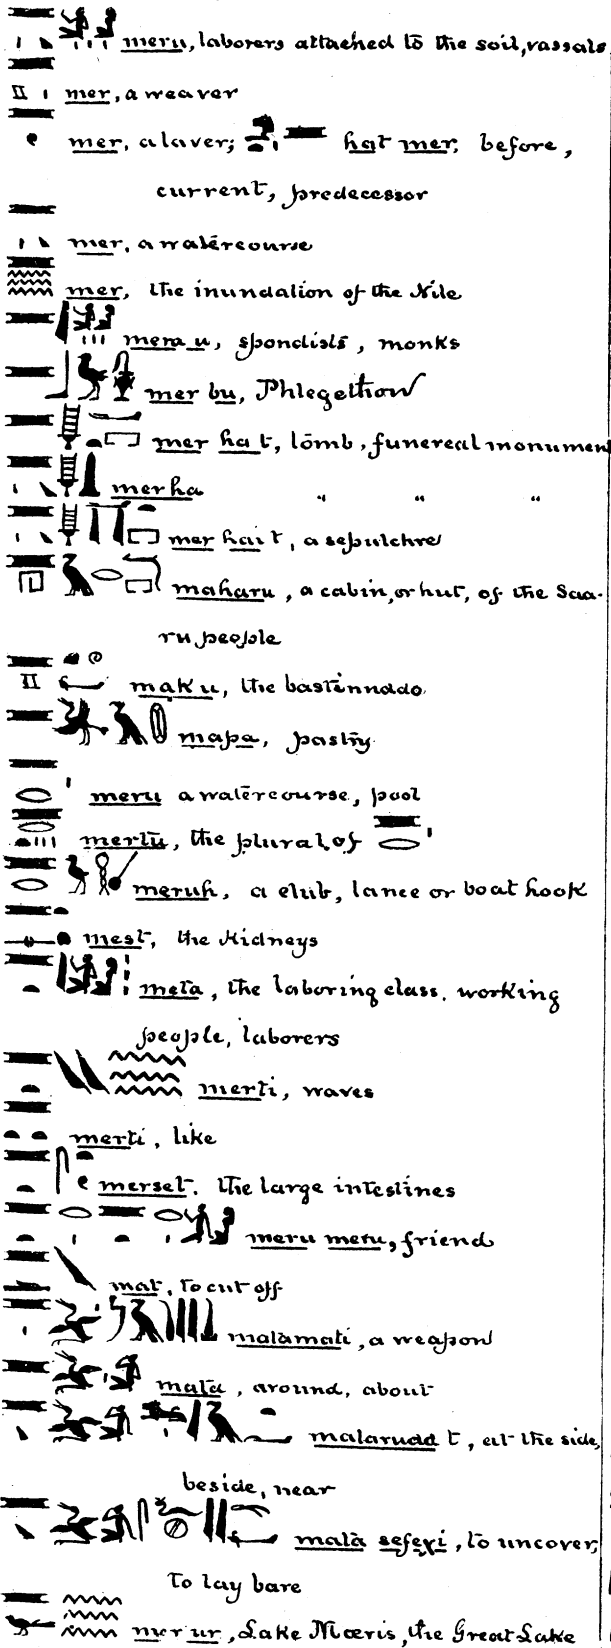 meru, laborers attached to the soil, vassals
mer, a weaver
mer, a laver; hat mer, before,
current, predecessor
mer, a watercourse
mer, the inundation of the Nile
mera u, spondists, monks
mer bu, Phlegethon
mer ha t, tomb, funereal monument
merha " " "
mer hai t, a sepulchre
maharu, a cabin, or hut, of the Saa-
ru people
mak u, the bastinnado
mapa, pastry
meru a watercourse, pool
mertu, the plural of
meruh, a club, lance or boat hook
mest, the kidneys
meta, the laboring class, working
people, laborers
merti, waves
merti, like
merset, the large intestines
meru meru, friend
mat, to cut off
matamati, a weapon
mata, around, about
mataruda t, at the side,
beside, near
mata sefexi, to uncover,
to lay bare
mer ur, Lake Mœris, the Great Lake